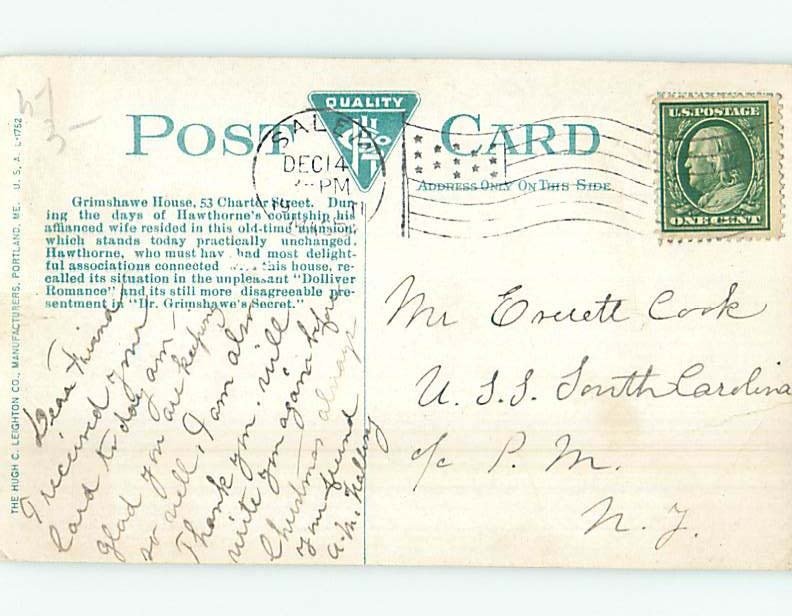 QUALITY
POST CARD
SALEM
DEC 14
PM
MASS
ADDRESS ONLY ON THIS SIDE.
U.S. POSTAGE
ONE CENT
5-/
3-
THE HUGH C. LEIGHTON CO., MANUFACTURERS, PORTLAND, ME. U. S. A. L-1752
Grimshawe House, 53 Charter Street. Dur-
ing the days of Hawthorne's courtship his
affianced wife resided in this old-time mansion,
which stands today practically unchanged.
Hawthorne, who must hav had most delight-
ful associations connected this house, re-
called its situation in the unpleasant "Dolliver
Romance" and its still more disagreeable pre-
sentment in "Dr. Grimshawe's Secret."
Dear Friend
I received your
card to day am
glad you are keeping
so well, I am also
Thank you. will
write you again before
Christmas always
your friend
A.M.
Mr Everett Cook
U.S.S. South Carolina
c/o P.M.
N.Y.